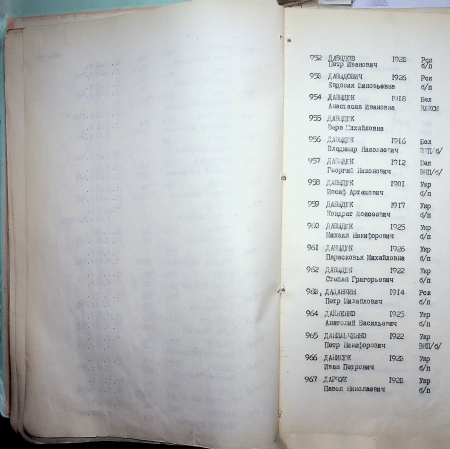 952 ДАВЫДОВ 1922 Рск
Петр Иванович б/п
953 ДАВЫДОВИЧ 1926 Рск
Евдокия Зиновьевна б/п
954 ДАВЫДЮК 1918 Бел
Анастасия Ивановна ВЛКСМ
955 ДАВЫДЮК
Вера Михайловна
956 ДАВЫДЮК 1916 Бел
Владимир Николаевич ВКП/б/
957 ДАВЫДЮК 1912 Бел
Георгий Никонович ВКП/б/
958 ДАВЫДЮК 1901 Укр
Иосиф Артамович б/п
959 ДАВЫДЮК 1917 Укр
Кондрат Моисеевич б/п
960 ДАВЫДЮК 1925 Укр
Михаил Никифорович б/п
961 ДАВЫДЮК 1926 Укр
Парасковья Михайловна б/п
962 ДАВЫДЮК 1922 Укр
Степан Григорьевич б/п
963 1914 Рск
Петр Михайлович б/п
964 1925 Укр
Анатолий Васильевич б/п
965 ДАНИЛЬЧЕНКО 1922 Укр
Петр Никифорович ВКП/б/
966 ДАНИСЮК 1923 Укр
Иван Петрович б/п
967 ДАРЧИК 1923 Укр
Павел Николаевич б/п